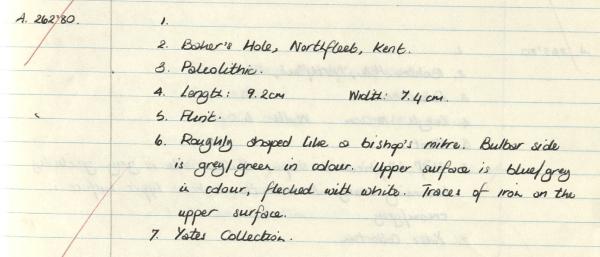 A. 262'80.
1.
2. Baker's Hole, Northfleet, Kent.
3. Paleolithic.
4. Length: 9.2cm Width: 7.4cm.
5. Flint.
6. Roughly shaped like a bishop's mitre. Bulbar side
is grey/green in colour. Upper surface is blue/grey
in colour, flecked with white. Traces of iron on the
upper surface.
7. Yates Collection.